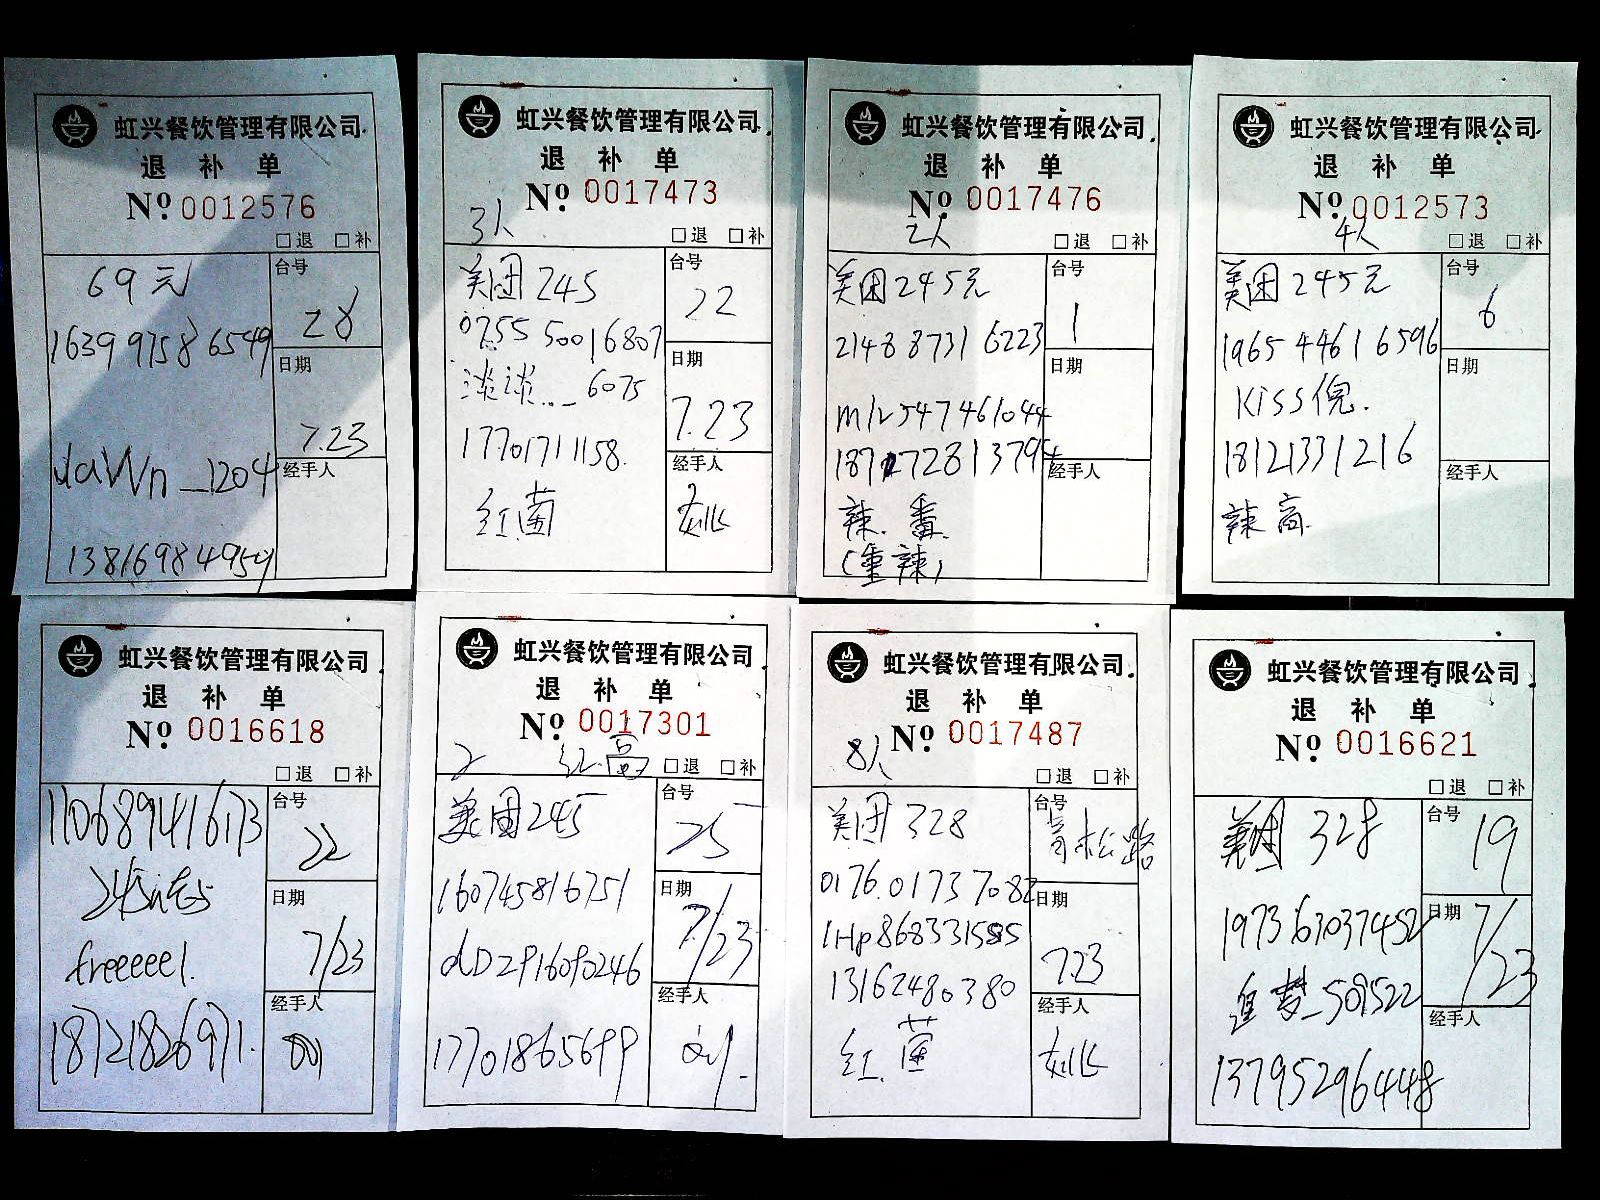 虹兴餐饮管理有限公司
退 补 单
No. 0012576
□退 □补
69元
1639 9758 6549
dawn_1204
13816984959
台号
28
日期
7.23
经手人
虹兴餐饮管理有限公司
退 补 单
No. 0017473
3人
□退 □补
美团245
0755 50016807
淡淡..._6075
17701711158.
红.菌
台号
22
日期
7.23
经手人
虹兴餐饮管理有限公司
退 补 单
No. 0017476
2人
□退 □补
美团245元
2148 8731 6223
mlr547461044
辣.番
(重辣)
台号
1
日期
经手人
虹兴餐饮管理有限公司
退 补 单
No. 0012573
4人
□退 □补
美团245元
1965 4461 6596
Kiss倪.
18121331216
辣高.
台号
6
日期
经手人
虹兴餐饮管理有限公司
退 补 单
No. 0016618
□退 □补
110689416173
freeeeel.
18721826971.
台号
22
日期
7/23
经手人
虹兴餐饮管理有限公司
退 补 单
No. 0017301
2 红.高
□退 □补
美团245
160745816751
dD2916090246
17701865699
台号
25
日期
7/23
经手人
虹兴餐饮管理有限公司
退 补 单
No. 0017487
8人
□退 □补
美团 328
0176.0173 7082
1Hp868331585
13162480380
红.菌
台号
青松路
日期
723
经手人
虹兴餐饮管理有限公司
退 补 单
No. 0016621
□退 □补
美团 328
1973 61037452
追梦_509522
13795296448
台号
19
日期
7/23
经手人